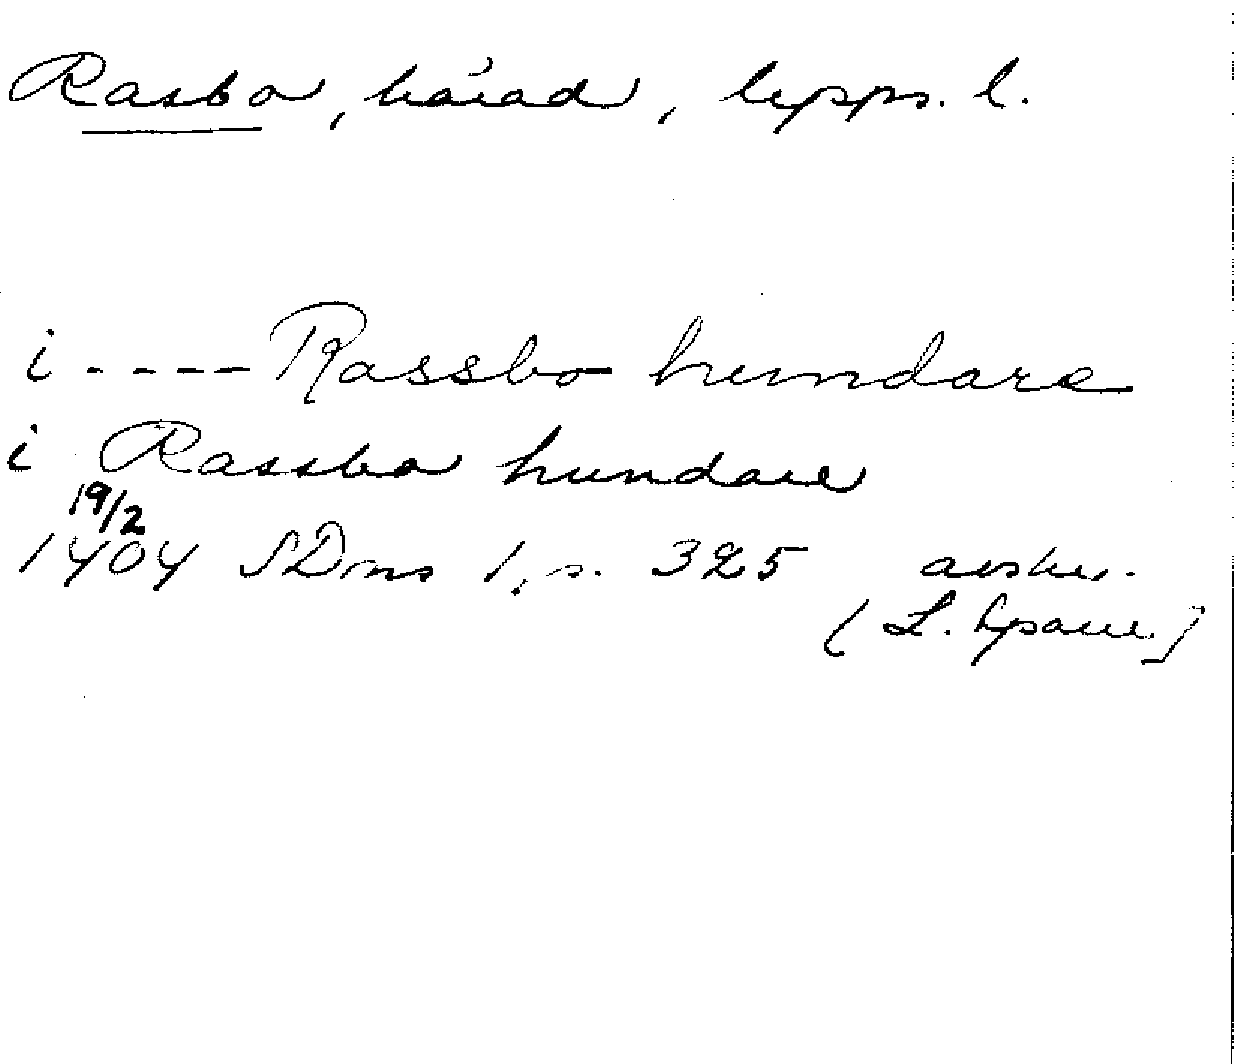 Rasbo, härad, Upps. l.
i ---- Rassbo hundare
i Rassbo hundare
19/2
1404 SDns 1, s. 325 avskr.
(L. Sparre)